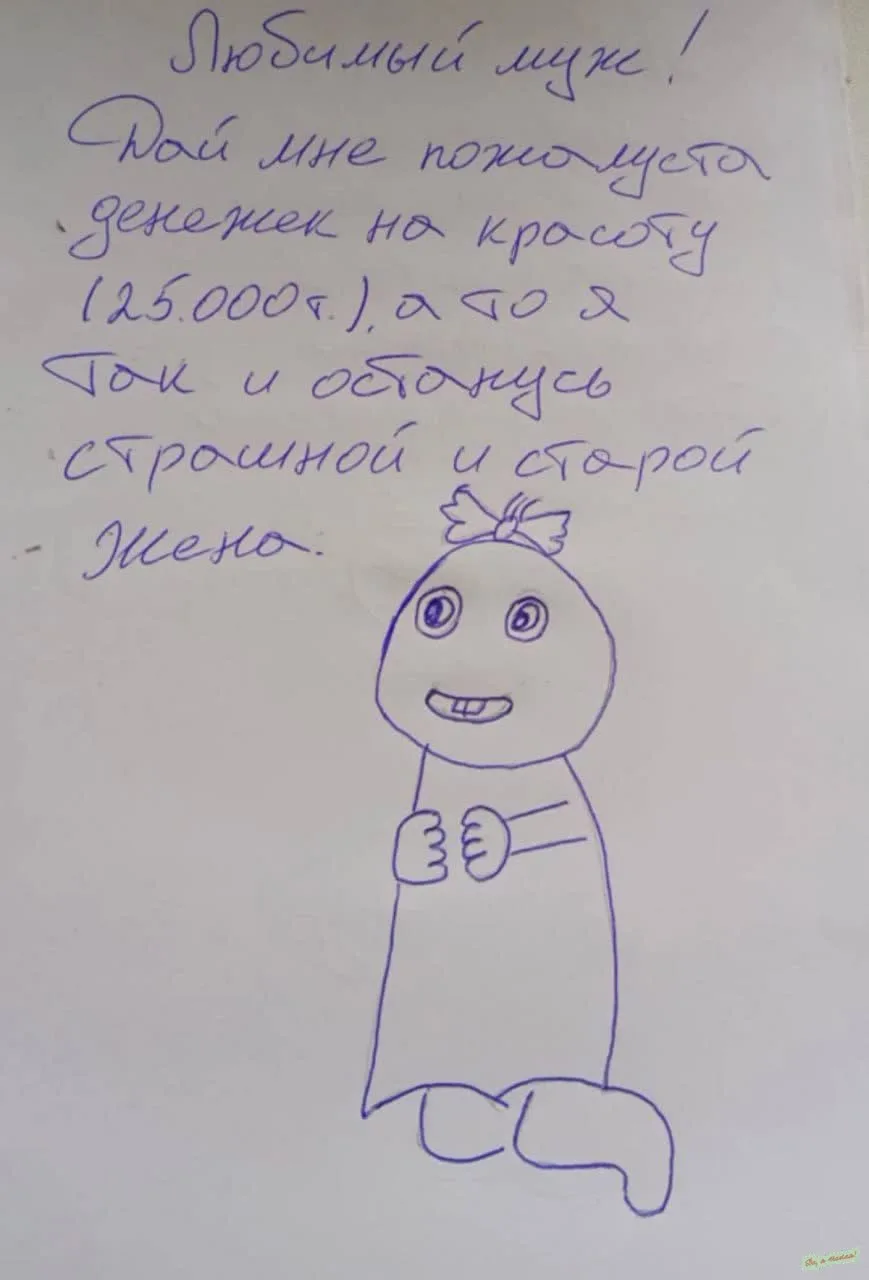 Любимый муж!
Дай мне пожалуста
денежек на красоту
(25.000т.), а то я
так и останусь
страшной и старой
Жена.